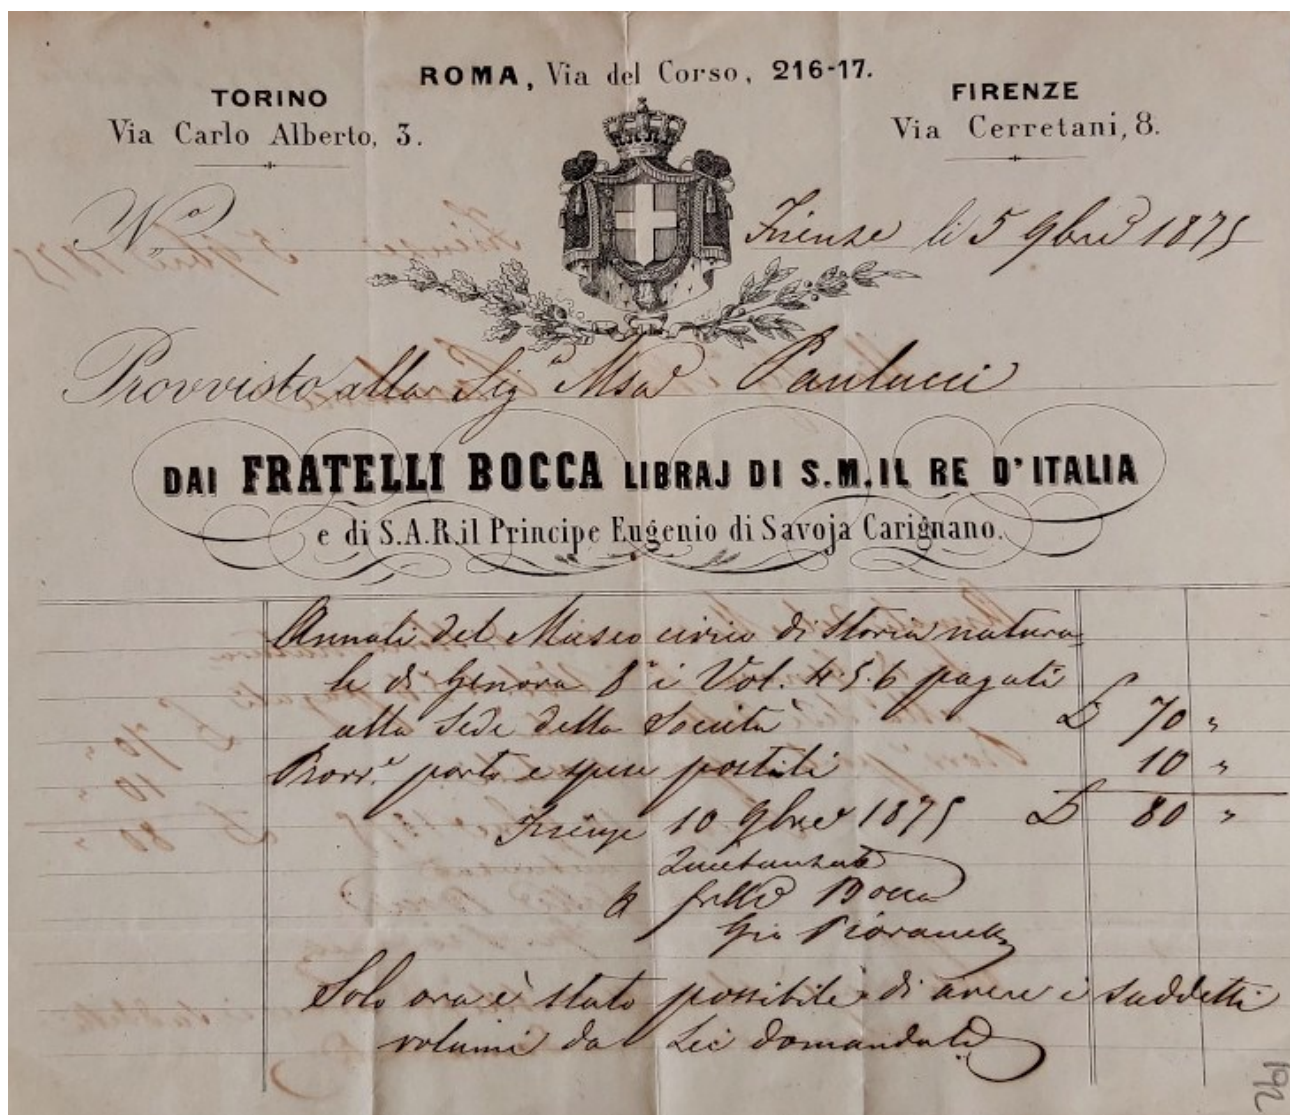 ROMA, Via del Corso, 216-17.
TORINO
Via Carlo Alberto, 3.
FIRENZE
Via Cerretani, 8.
N.o
Firenze li 5 9bre 1875
Provvisto alla Sig.a Msa Paulucci
DAI FRATELLI BOCCA LIBRAJ DI S.M. IL RE D'ITALIA
e di S.A.R. il Principe Eugenio di Savoja Carignano.
Annali del Museo civico di Storia natura-
le di Genova 8° i Vol. 4.5.6 pagati
alla Sede della Società L 70 "
porto e spese postali 10 "
Firenze 10 9bre 1875 L 80 "
Quietanzato
p frlli Bocca
Gio
Solo ora è stato possibile di avere i suddetti
volumi da Lei domandati
192